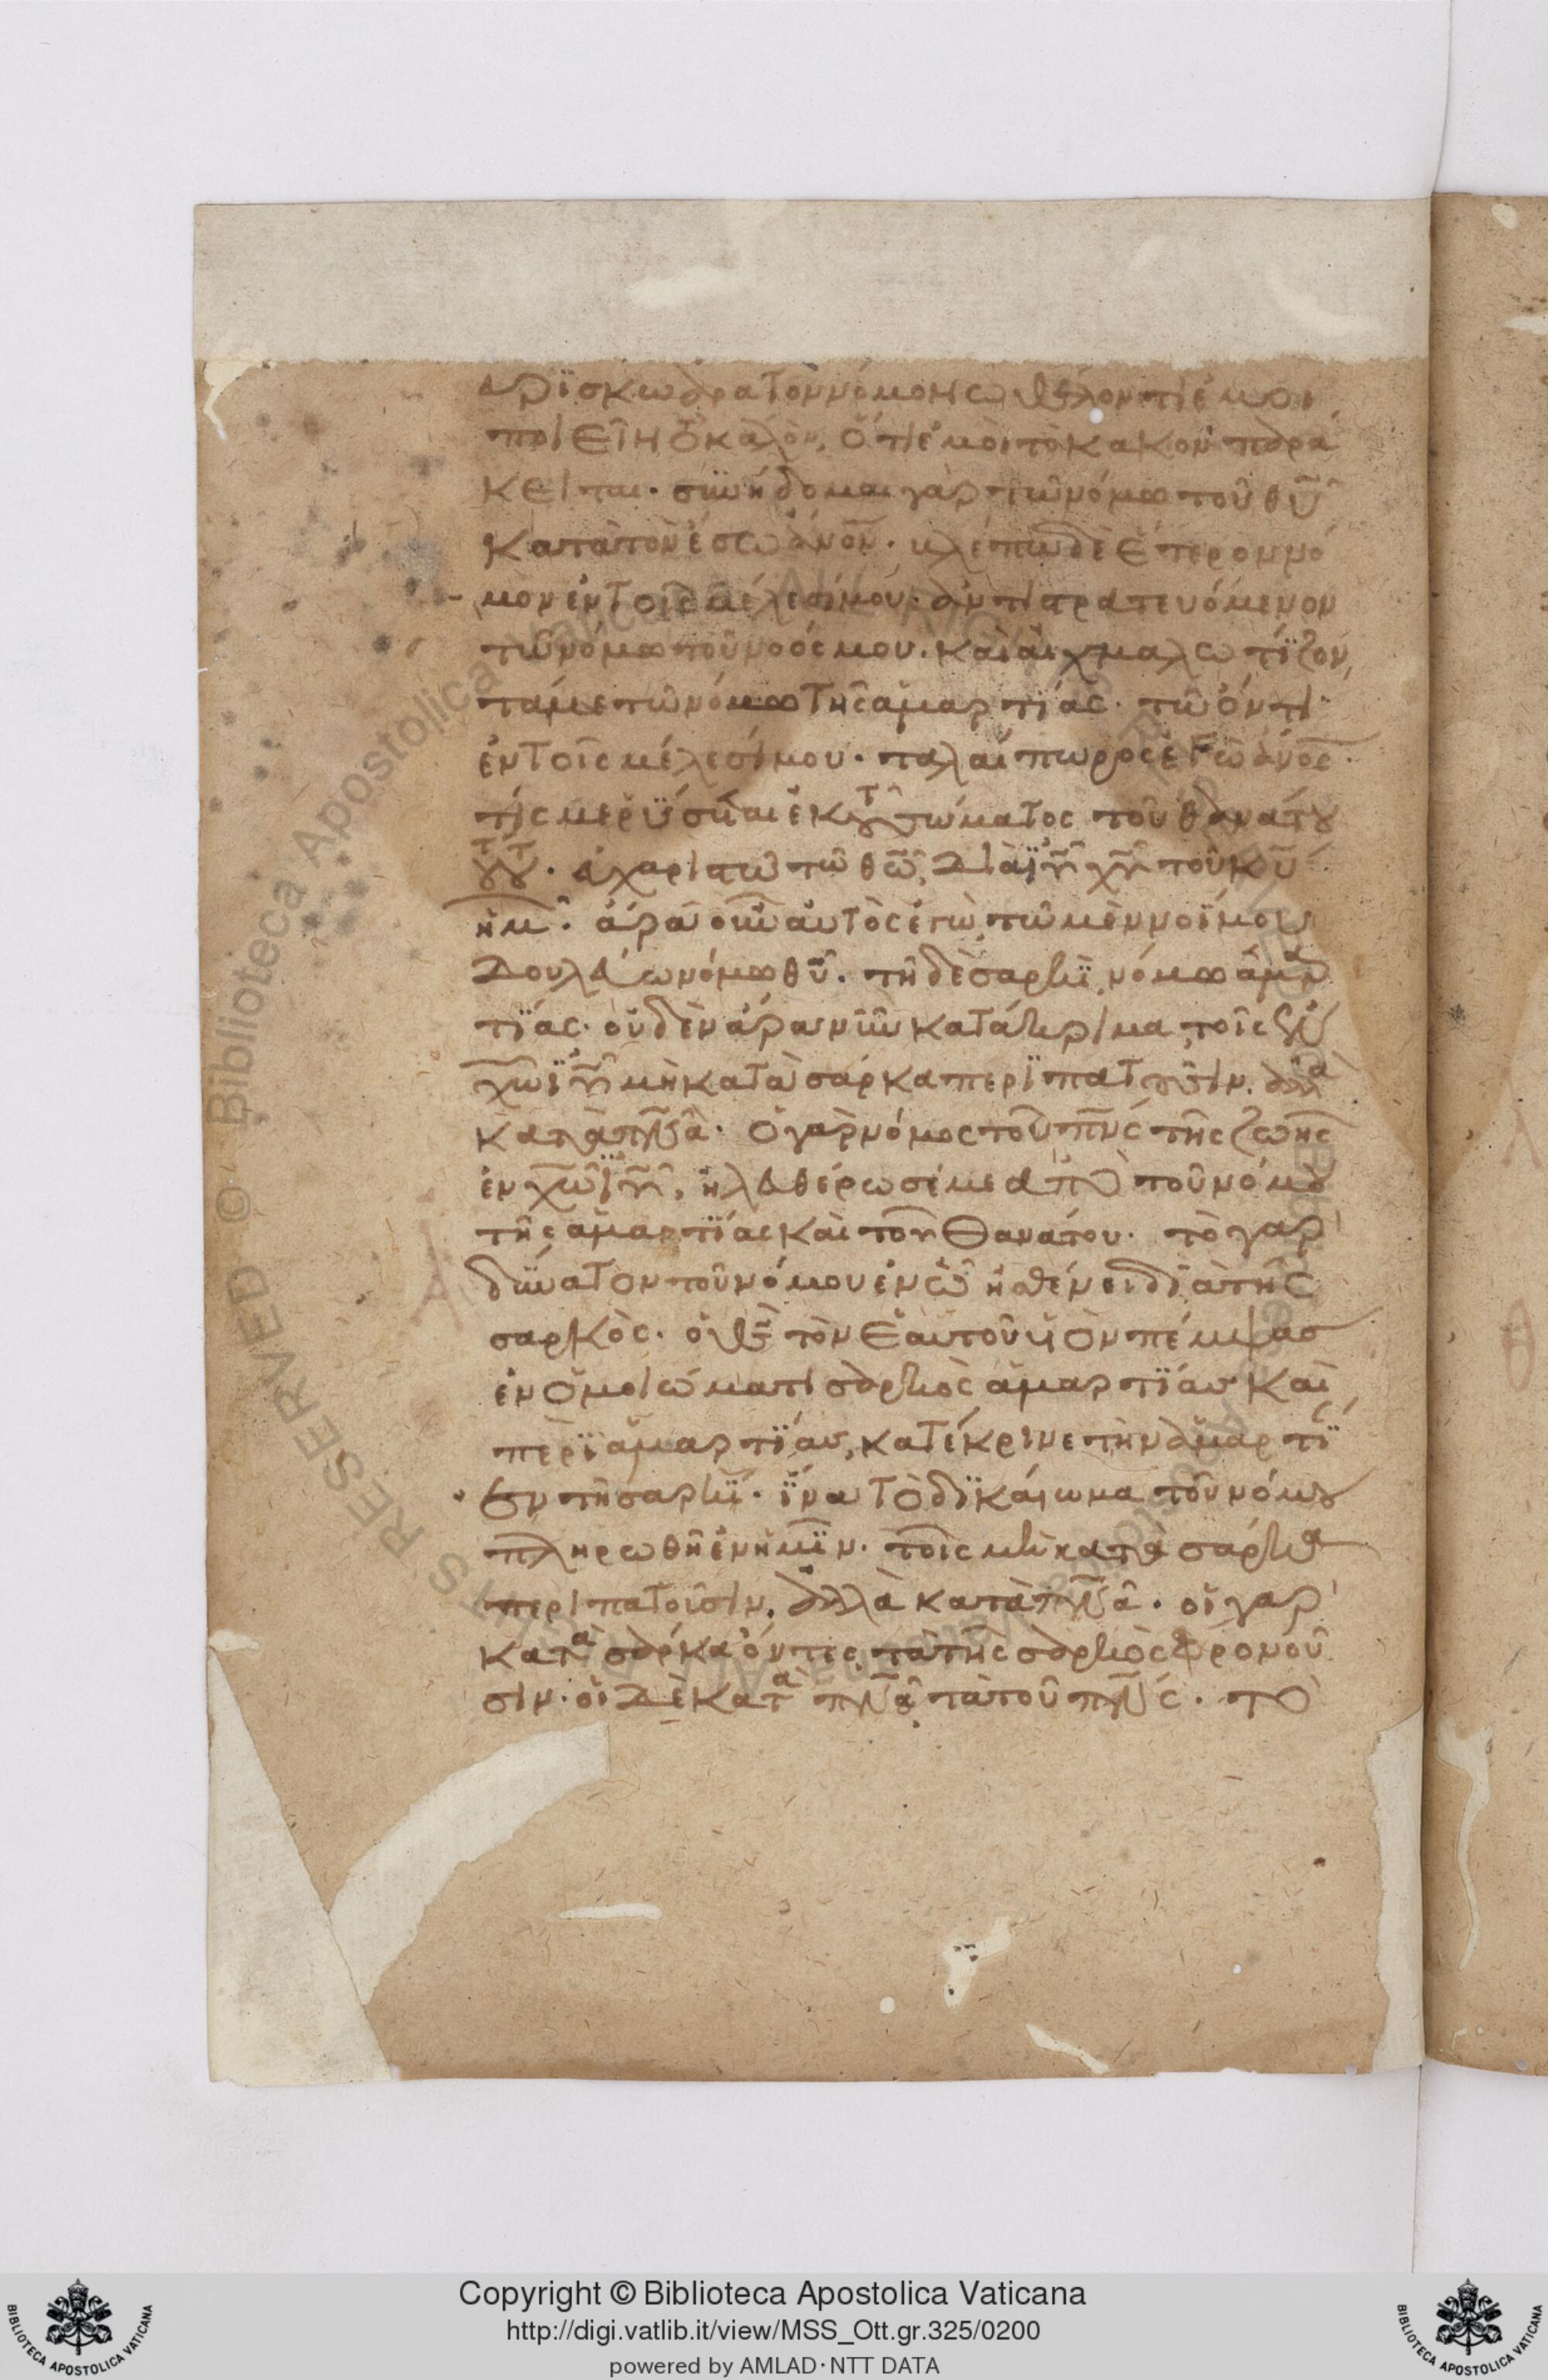 εὑρΐσκω ἄρα τὸν νόμον τῶ θέλοντι ἐμοὶ
ποιεῖν τὸ καλὸν, ὅτι ἐμοὶ τὸ κακὸν παρά
κειται· συνήδομαι γὰρ τῶ νόμω τοῦ θ̅υ̅
κατὰ τὸν ἔσω ἄν̅ο̅ν· βλέπω δὲ ἕτερον νό
μον ἐν τοῖς μέλεσί μου· ἀντιστρατευόμενον
τῶ νόμω τοῦ νοός μου. καὶ αἰχμαλωτίζον
τά με τῶ νόμω τῆς ἁμαρτίας· τῶ ὄντι
ἐν τοῖς μέλεσί μου· ταλαίπωρος ἐγὼ ἄν̅ο̅ς·
τίς με ῥύσεται ἐκ τοῦ σώματος τοῦ θανάτου
τούτου· εὐχαριστῶ τῶ θ̅ω̅, διὰ ἰ̅υ̅ χ̅υ̅ τοῦ κ̅υ̅
ἡμ· ἄρα οὖν αὐτὸς ἐγὼ, τῶ μὲν νοΐ μου
δουλεύω νόμω θ̅υ̅. τῆ δὲ σαρκῒ, νόμω ἁμαρ
τίας· οὐδὲν ἄρα νῦν κατάκριμα, τοῖς ἐν
χ̅ω̅ ἰ̅υ̅ μὴ κατὰ σάρκα περϊπατοῦσιν. ἀλλὰ
κατὰ π̅ν̅α̅· ὁ γὰρ νόμος τοῦ π̅ν̅ς̅ τῆς ζωῆς
ἐν χ̅ω̅ ἰ̅υ̅, ἠλευθέρωσέ με ἀπὸ τοῦ νόμου
τῆς ἁμαρτίας καὶ τοῦ θανάτου· τὸ γὰρ
δύνατον τοῦ νόμου ἐν ὧ ἠσθένει διὰ τῆς
σαρκὸς· ὁ θ̅ς̅ τὸν ἑαυτοῦ υἱὸν πέμψας
ἐν ὁμοιώματι σαρκὸς ἁμαρτίας καὶ
περὶ ἁμαρτίας, κατέκρινε τὴν ἁμαρτί
ἐν τῆ σαρκί· ἵνα τὸ δϊκαίωμα τοῦ νόμου
πληρωθῆ ἐν ἡμῖν· τοῖς μὴ κατὰ σάρκα
περιπατοῦσιν, ἀλλὰ κατὰ π̅ν̅α̅· οἱ γὰρ
κατὰ σάρκα ὄντες, τὰ τῆς σαρκὸς φρονοῦ
σιν· οἱ δὲ κατὰ π̅ν̅α̅, τὰ τοῦ π̅ν̅ς̅· τὸ
Copyright © Biblioteca Apostolica Vaticana
http://digi.vatlib.it/view/MSS_Ott.gr.325/0200
powered by AMLAD·NTT DATA